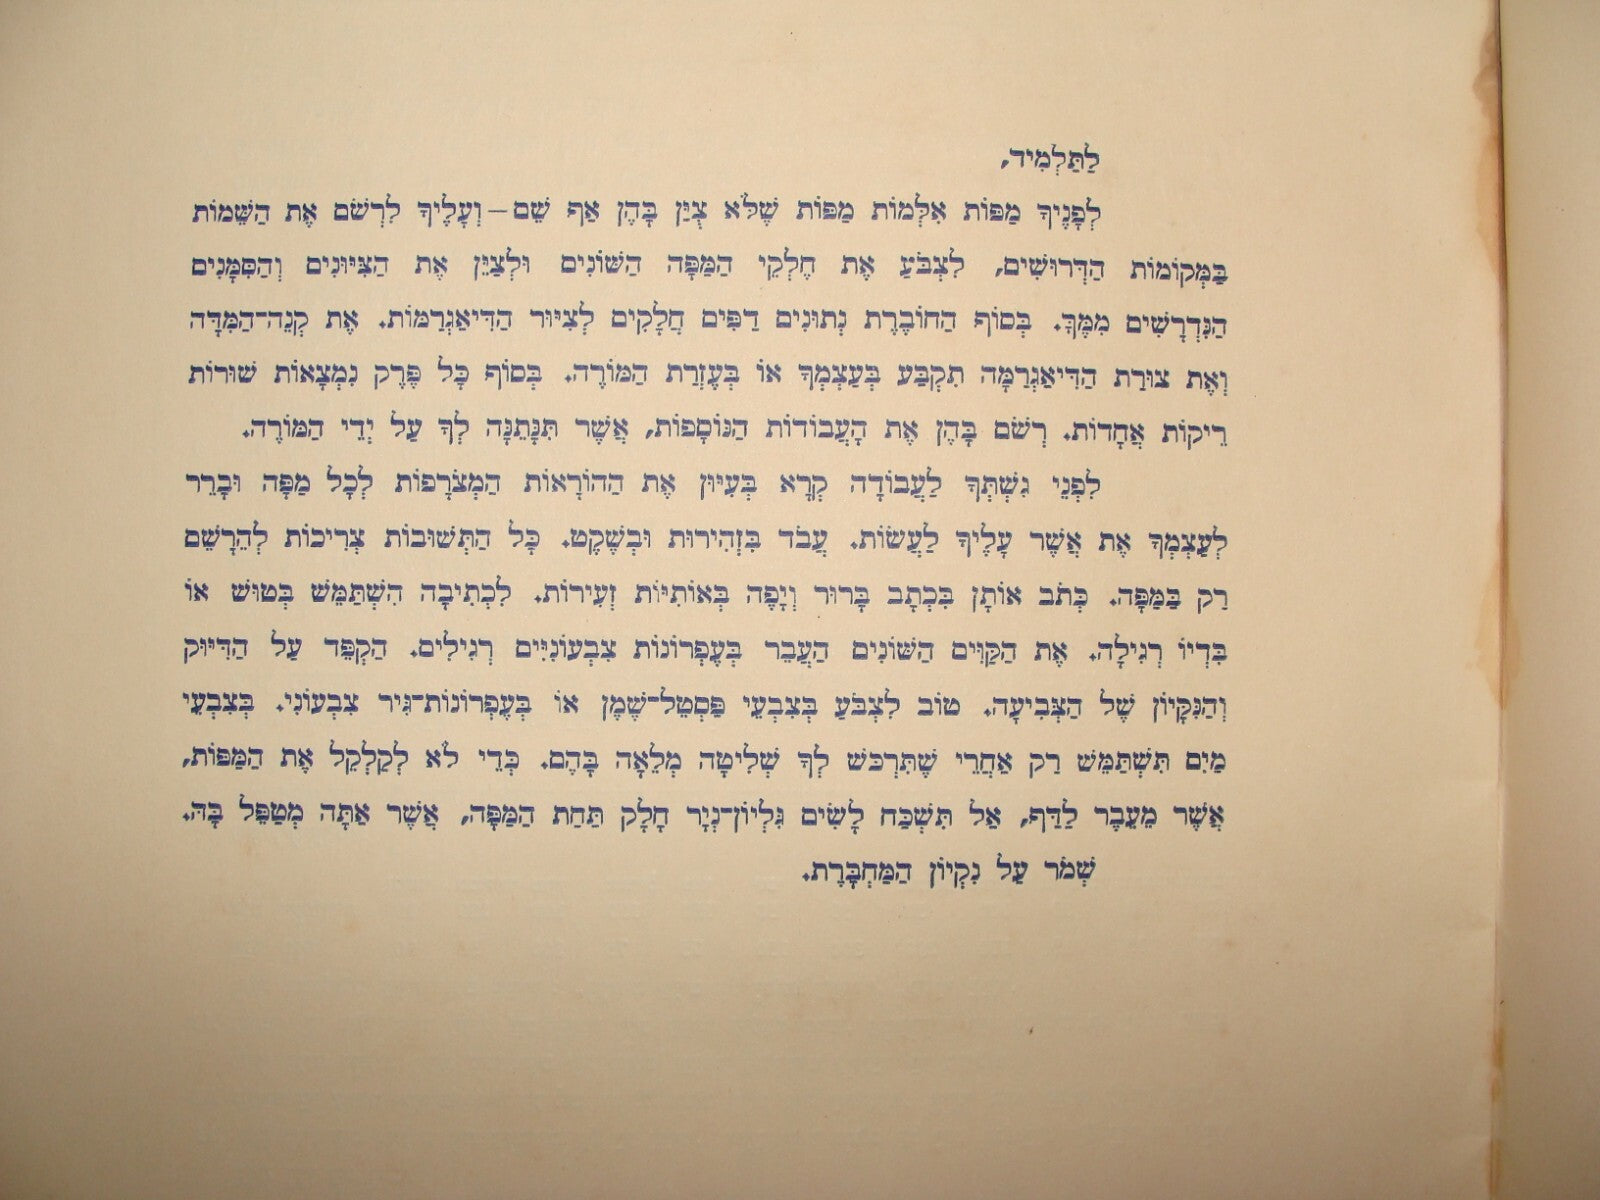 לַתַּלְמִיד,
לְפָנֶיךָ מַפּוֹת אִלְּמוֹת מַפּוֹת שֶׁלֹּא צֻיַּן בָּהֶן אַף שֵׁם – וְעָלֶיךָ לִרְשֹׁם אֶת הַשֵּׁמוֹת
בַּמְּקוֹמוֹת הַדְּרוּשִׁים, לִצְבֹּעַ אֶת חֶלְקֵי הַמַּפָּה הַשּׁוֹנִים וּלְצַיֵּן אֶת הַצִּיּוּנִים וְהַסִּמָּנִים
הַנִּדְרָשִׁים מִמְּךָ. בְּסוֹף הַחוֹבֶרֶת נְתוּנִים דַּפִּים חֲלָקִים לְצִיּוּר הַדִּיאַגְרַמּוֹת. אֶת קְנֵה־הַמִּדָּה
וְאֶת צוּרַת הַדִּיאַגְרַמָּה תִּקְבַּע בְּעַצְמְךָ אוֹ בְּעֶזְרַת הַמּוֹרֶה. בְּסוֹף כָּל פֶּרֶק נִמְצָאוֹת שׁוּרוֹת
רֵיקוֹת אֲחָדוֹת. רְשֹׁם בָּהֶן אֶת הָעֲבוֹדוֹת הַנּוֹסָפוֹת, אֲשֶׁר תִּנָּתֵנָּה לְךָ עַל יְדֵי הַמּוֹרֶה.
לִפְנֵי גִשְׁתְּךָ לַעֲבוֹדָה קְרָא בְּעִיּוּן אֶת הַהוֹרָאוֹת הַמְצֹרָפוֹת לְכָל מַפָּה וּבָרֵר
לְעַצְמְךָ אֶת אֲשֶׁר עָלֶיךָ לַעֲשׂוֹת. עֲבֹד בִּזְהִירוּת וּבְשֶׁקֶט. כָּל הַתְּשׁוּבוֹת צְרִיכוֹת לְהֵרָשֵׁם
רַק בַּמַּפָּה. כְּתֹב אוֹתָן בִּכְתָב בָּרוּר וְיָפֶה בְּאוֹתִיּוֹת זְעִירוֹת. לִכְתִיבָה הִשְׁתַּמֵּשׁ בְּטוּשׁ אוֹ
בִּדְיוֹ רְגִילָה. אֶת הַקַּוִּים הַשּׁוֹנִים הַעֲבֵר בְּעֶפְרוֹנוֹת צִבְעוֹנִיִּים רְגִילִים. הַקְפֵּד עַל הַדִּיּוּק
וְהַנִּקָּיוֹן שֶׁל הַצְּבִיעָה. טוֹב לִצְבֹּעַ בְּצִבְעֵי פַּסְטֶל־שֶׁמֶן אוֹ בְּעֶפְרוֹנוֹת־גִּיר צִבְעוֹנִי. בְּצִבְעֵי
מַיִם תִּשְׁתַּמֵּשׁ רַק אַחֲרֵי שֶׁתִּרְכֹּשׁ לְךָ שְׁלִיטָה מְלֵאָה בָּהֶם. כְּדֵי לֹא לְקַלְקֵל אֶת הַמַּפּוֹת,
אֲשֶׁר מֵעֵבֶר לַדַּף, אַל תִּשְׁכַּח לָשִׂים גִּלְיוֹן־נְיָר חָלָק תַּחַת הַמַּפָּה, אֲשֶׁר אַתָּה מְטַפֵּל בָּהּ.
שְׁמֹר עַל נִקְיוֹן הַמַּחְבָּרֶת.